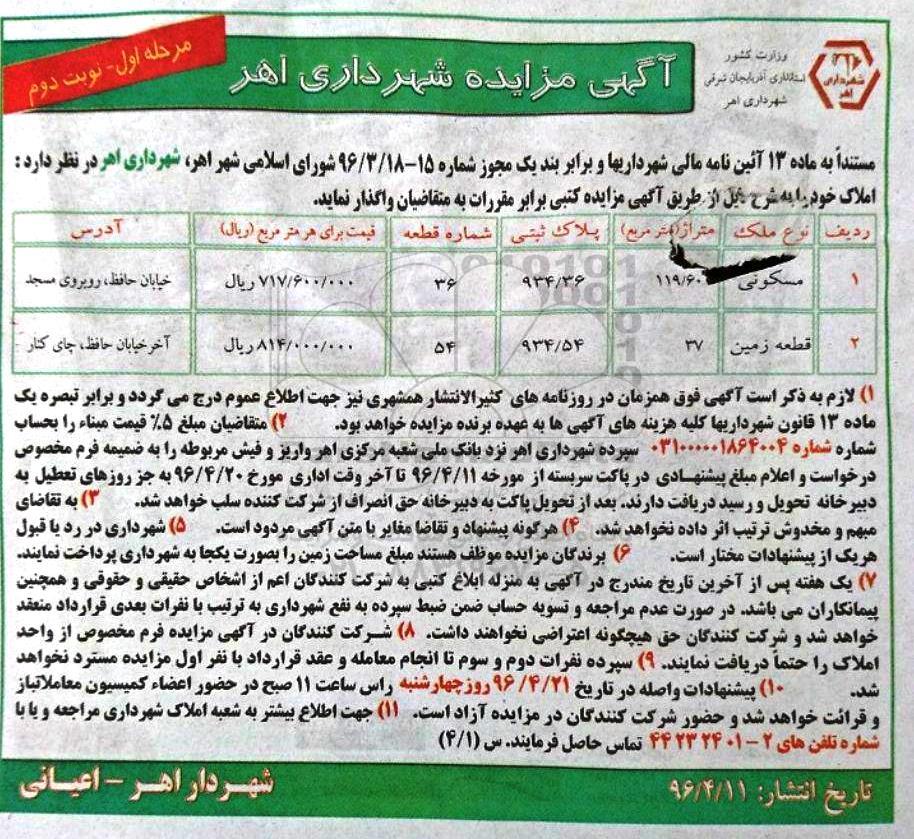 مرحله اول - نوبت دوم
آگهی مزایده شهرداری اهر
وزارت کشور
استانداری آذربایجان شرقی
شهرداری اهر
شهرداری
اهر
مستنداً به ماده ۱۳ آئین نامه مالی شهرداریها و برابر بند یک مجوز شماره ۱۵-۹۶/۳/۱۸ شورای اسلامی شهر اهر، شهرداری اهر در نظر دارد :
املاک خود را به شرح ذیل از طریق آگهی مزایده کتبی برابر مقررات به متقاضیان واگذار نماید.
ردیف نوع ملک متراژ (متر مربع) پلاک ثبتی شماره قطعه قیمت برای هر متر مربع (ریال) آدرس
۱ مسکونی ۱۱۹/۶۰ ۹۳۴/۳۶ ۳۶ ۷۱۷/۶۰۰/۰۰۰ ریال خیابان حافظ، روبروی مسجد
۲ قطعه زمین ۳۷ ۹۳۴/۵۴ ۵۴ ۸۱۴/۰۰۰/۰۰۰ ریال آخر خیابان حافظ، چای کنار
۱) لازم به ذکر است آگهی فوق همزمان در روزنامه های کثیرالانتشار همشهری نیز جهت اطلاع عموم درج می گردد و برابر تبصره یک
ماده ۱۳ قانون شهرداریها کلیه هزینه های آگهی ها به عهده برنده مزایده خواهد بود. ۲) متقاضیان مبلغ ۵٪ قیمت مبناء را بحساب
شماره شماره ۰۳۱۰۰۰۰۰۱۸۶۴۰۰۴ سپرده شهرداری اهر نزد بانک ملی شعبه مرکزی اهر واریز و فیش مربوطه را به ضمیمه فرم مخصوص
درخواست و اعلام مبلغ پیشنهادی در پاکت سربسته از مورخه ۹۶/۴/۱۱ تا آخر وقت اداری مورخ ۹۶/۴/۲۰ به جز روزهای تعطیل به
دبیرخانه تحویل و رسید دریافت دارند. بعد از تحویل پاکت به دبیرخانه حق انصراف از شرکت کننده سلب خواهد شد. ۳) به تقاضای
مبهم و مخدوش ترتیب اثر داده نخواهد شد. ۴) هرگونه پیشنهاد و تقاضا مغایر با متن آگهی مردود است. ۵) شهرداری در رد یا قبول
هریک از پیشنهادات مختار است. ۶) برندگان مزایده موظف هستند مبلغ مساحت زمین را بصورت یکجا به شهرداری پرداخت نمایند.
۷) یک هفته پس از آخرین تاریخ مندرج در آگهی به منزله ابلاغ کتبی به شرکت کنندگان اعم از اشخاص حقیقی و حقوقی و همچنین
پیمانکاران می باشد. در صورت عدم مراجعه و تسویه حساب ضمن ضبط سپرده به نفع شهرداری به ترتیب با نفرات بعدی قرارداد منعقد
خواهد شد و شرکت کنندگان حق هیچگونه اعتراضی نخواهند داشت. ۸) شرکت کنندگان در آگهی مزایده فرم مخصوص از واحد
املاک را حتماً دریافت نمایند. ۹) سپرده نفرات دوم و سوم تا انجام معامله و عقد قرارداد با نفر اول مزایده مسترد نخواهد
شد. ۱۰) پیشنهادات واصله در تاریخ ۹۶/۴/۲۱ روز چهارشنبه راس ساعت ۱۱ صبح در حضور اعضاء کمیسیون معاملات باز
و قرائت خواهد شد و حضور شرکت کنندگان در مزایده آزاد است. ۱۱) جهت اطلاع بیشتر به شعبه املاک شهرداری مراجعه و یا با
شماره تلفن های ۲ - ۴۴۲۳۲۴۰۱ تماس حاصل فرمایند. س (۴/۱)
تاریخ انتشار: ۹۶/۴/۱۱
شهردار اهر - اعیانی